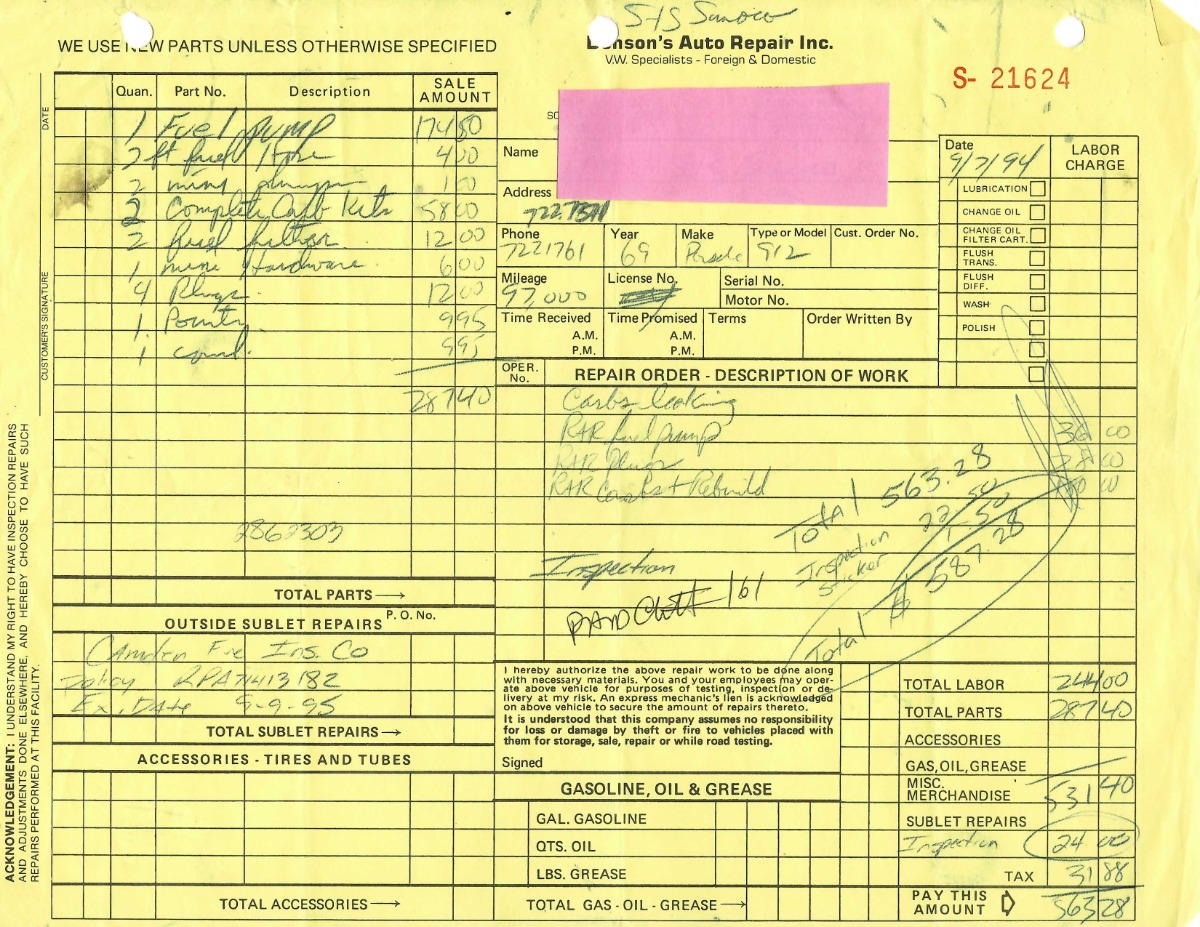 S+S Sunoco
WE USE NEW PARTS UNLESS OTHERWISE SPECIFIED
son's Auto Repair Inc.
V.W. Specialists - Foreign & Domestic
S- 21624
Quan. Part No. Description SALE AMOUNT
1 Fuel pump 174 50
2 ft fuel Hose 4 00
2 mini 1 00
2 Complete Carb Kits 58 00
2 fuel filter 12 00
1 mini Hardware 6 00
4 Plugs 12 00
1 Points 9 95
1 cond. 9 95
287 40
2862303
TOTAL PARTS →
OUTSIDE SUBLET REPAIRS P. O. No.
Camden Fire Ins. Co
Policy RPA71413182
Ex. Date 9-9-95
TOTAL SUBLET REPAIRS →
ACCESSORIES - TIRES AND TUBES
TOTAL ACCESSORIES →
DATE
CUSTOMER'S SIGNATURE
ACKNOWLEDGEMENT: I UNDERSTAND MY RIGHT TO HAVE INSPECTION REPAIRS
AND ADJUSTMENTS DONE ELSEWHERE, AND HEREBY CHOOSE TO HAVE SUCH
REPAIRS PERFORMED AT THIS FACILITY.
Name
Address
Phone 7221761
Year 69
Make
Type or Model 912
Cust. Order No.
Mileage 97,000
License No.
Serial No.
Motor No.
Time Received A.M. P.M.
Time Promised A.M. P.M.
Terms
Order Written By
Date 9/7/94
LABOR CHARGE
LUBRICATION
CHANGE OIL
CHANGE OIL FILTER CART.
FLUSH TRANS.
FLUSH DIFF.
WASH
POLISH
OPER. No. REPAIR ORDER - DESCRIPTION OF WORK
Carbs leaking
R&R fuel pump 36 00
R&R Plugs 28 00
R&R Carbs + Rebuild 00
Total 563.28
Inspection 22.50
Sticker 1.50
Total $587.28
Inspection
161
I hereby authorize the above repair work to be done along
with necessary materials. You and your employees may oper-
ate above vehicle for purposes of testing, inspection or de-
livery at my risk. An express mechanic's lien is acknowledged
on above vehicle to secure the amount of repairs thereto.
It is understood that this company assumes no responsibility
for loss or damage by theft or fire to vehicles placed with
them for storage, sale, repair or while road testing.
Signed
GASOLINE, OIL & GREASE
GAL. GASOLINE
QTS. OIL
LBS. GREASE
TOTAL GAS - OIL - GREASE →
TOTAL LABOR 244 00
TOTAL PARTS 287 40
ACCESSORIES
GAS, OIL, GREASE
MISC. MERCHANDISE 531 40
SUBLET REPAIRS
Inspection 24 00
TAX 31 88
PAY THIS AMOUNT 563 28